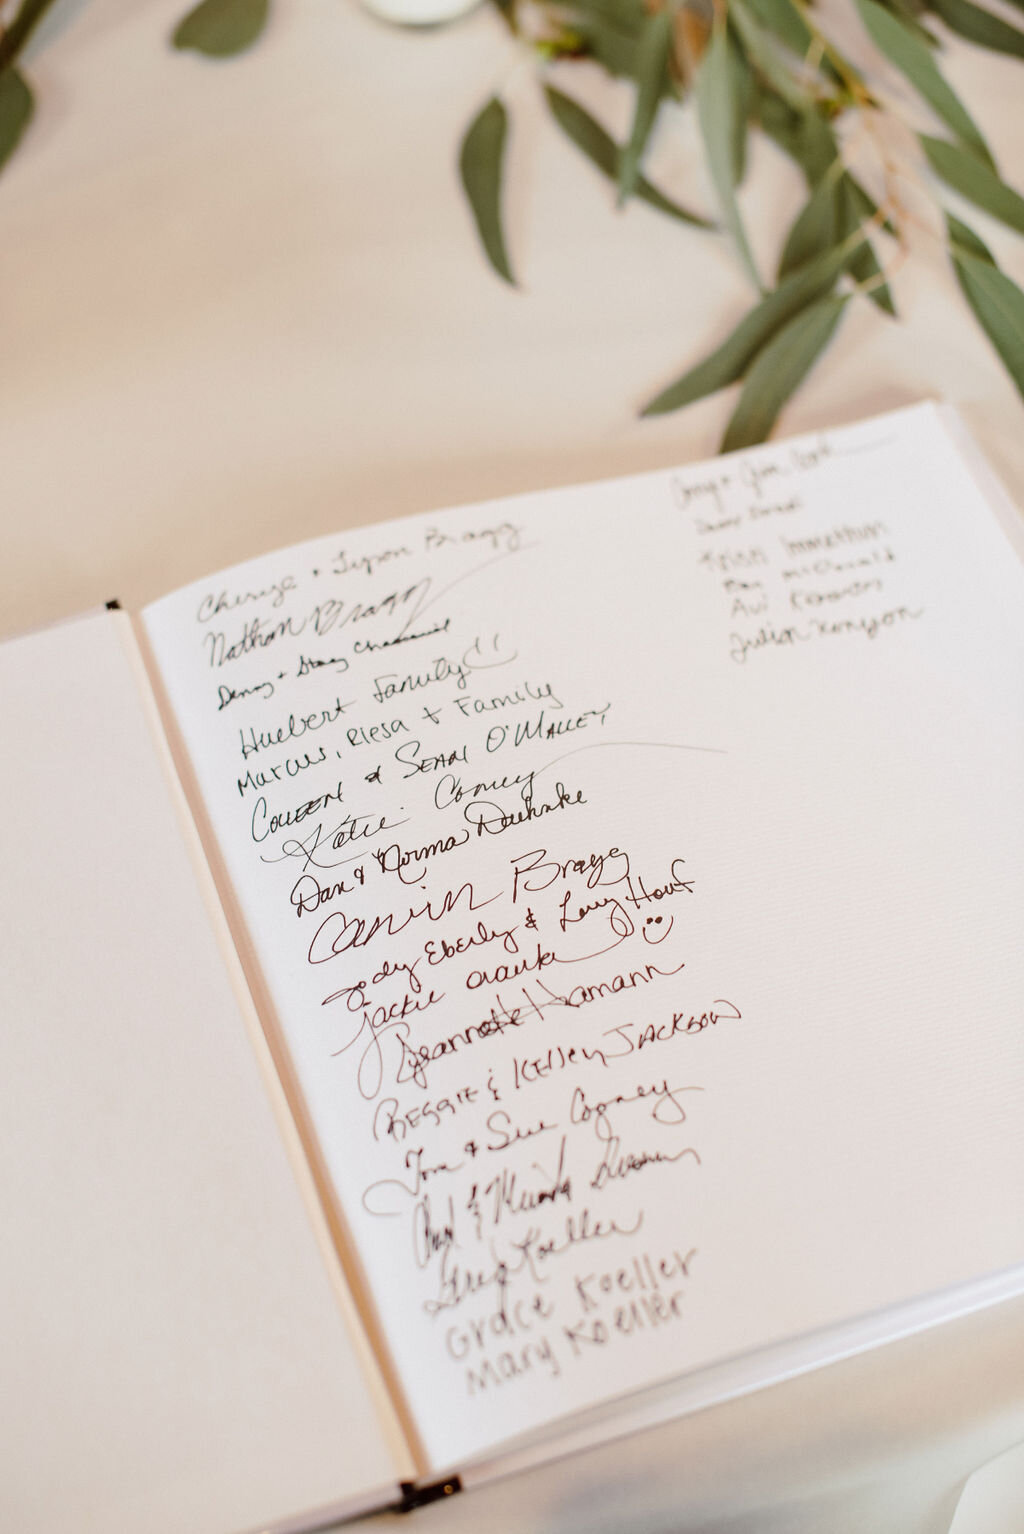 Cheryl + Tyson Bragg
Nathan Bragg
Denny + Stacy
Huebert Family
Marcus, Riesa + Family
Colleen & Sean O'Malley
Katie Cogney
Dan & Norma Duehnke
Calvin Bragg
Jody Eberly & Larry Houf
jackie
Jeannette Hamann
Reggie & Kelley Jackson
Tom & Sue Cogney
&
Greg Koeller
Grace Koeller
Mary Koeller
& Jim
Kristi Immethun
McDonald
Avi
Julian